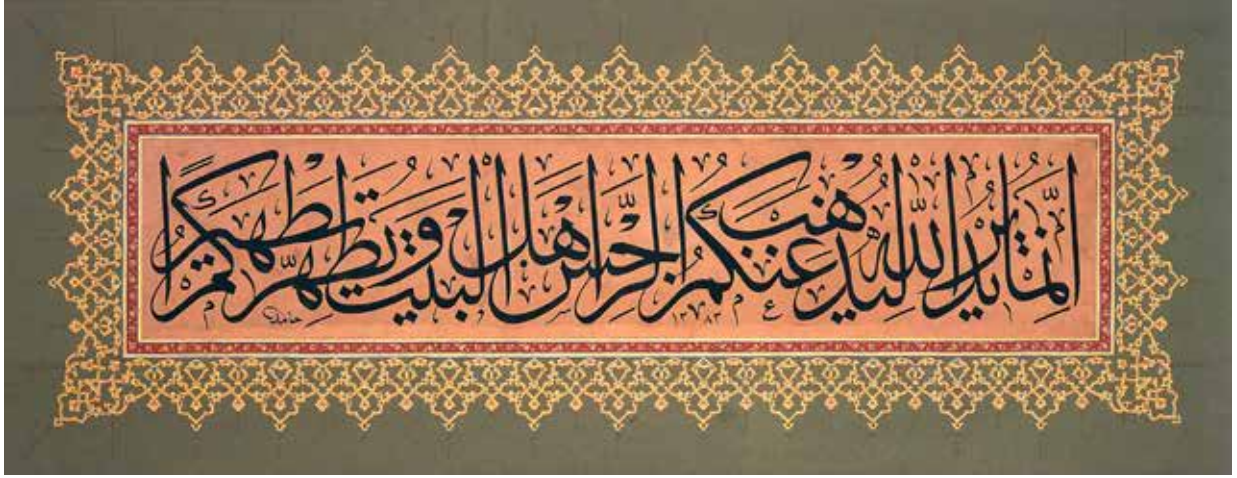 إِنَّمَا يُرِيدُ اللَّهُ لِيُذْهِبَ عَنْكُمُ الرِّجْسَ أَهْلَ الْبَيْتِ وَيُطَهِّرَكُمْ تَطْهِيرًا
حامد ١٣٨٣